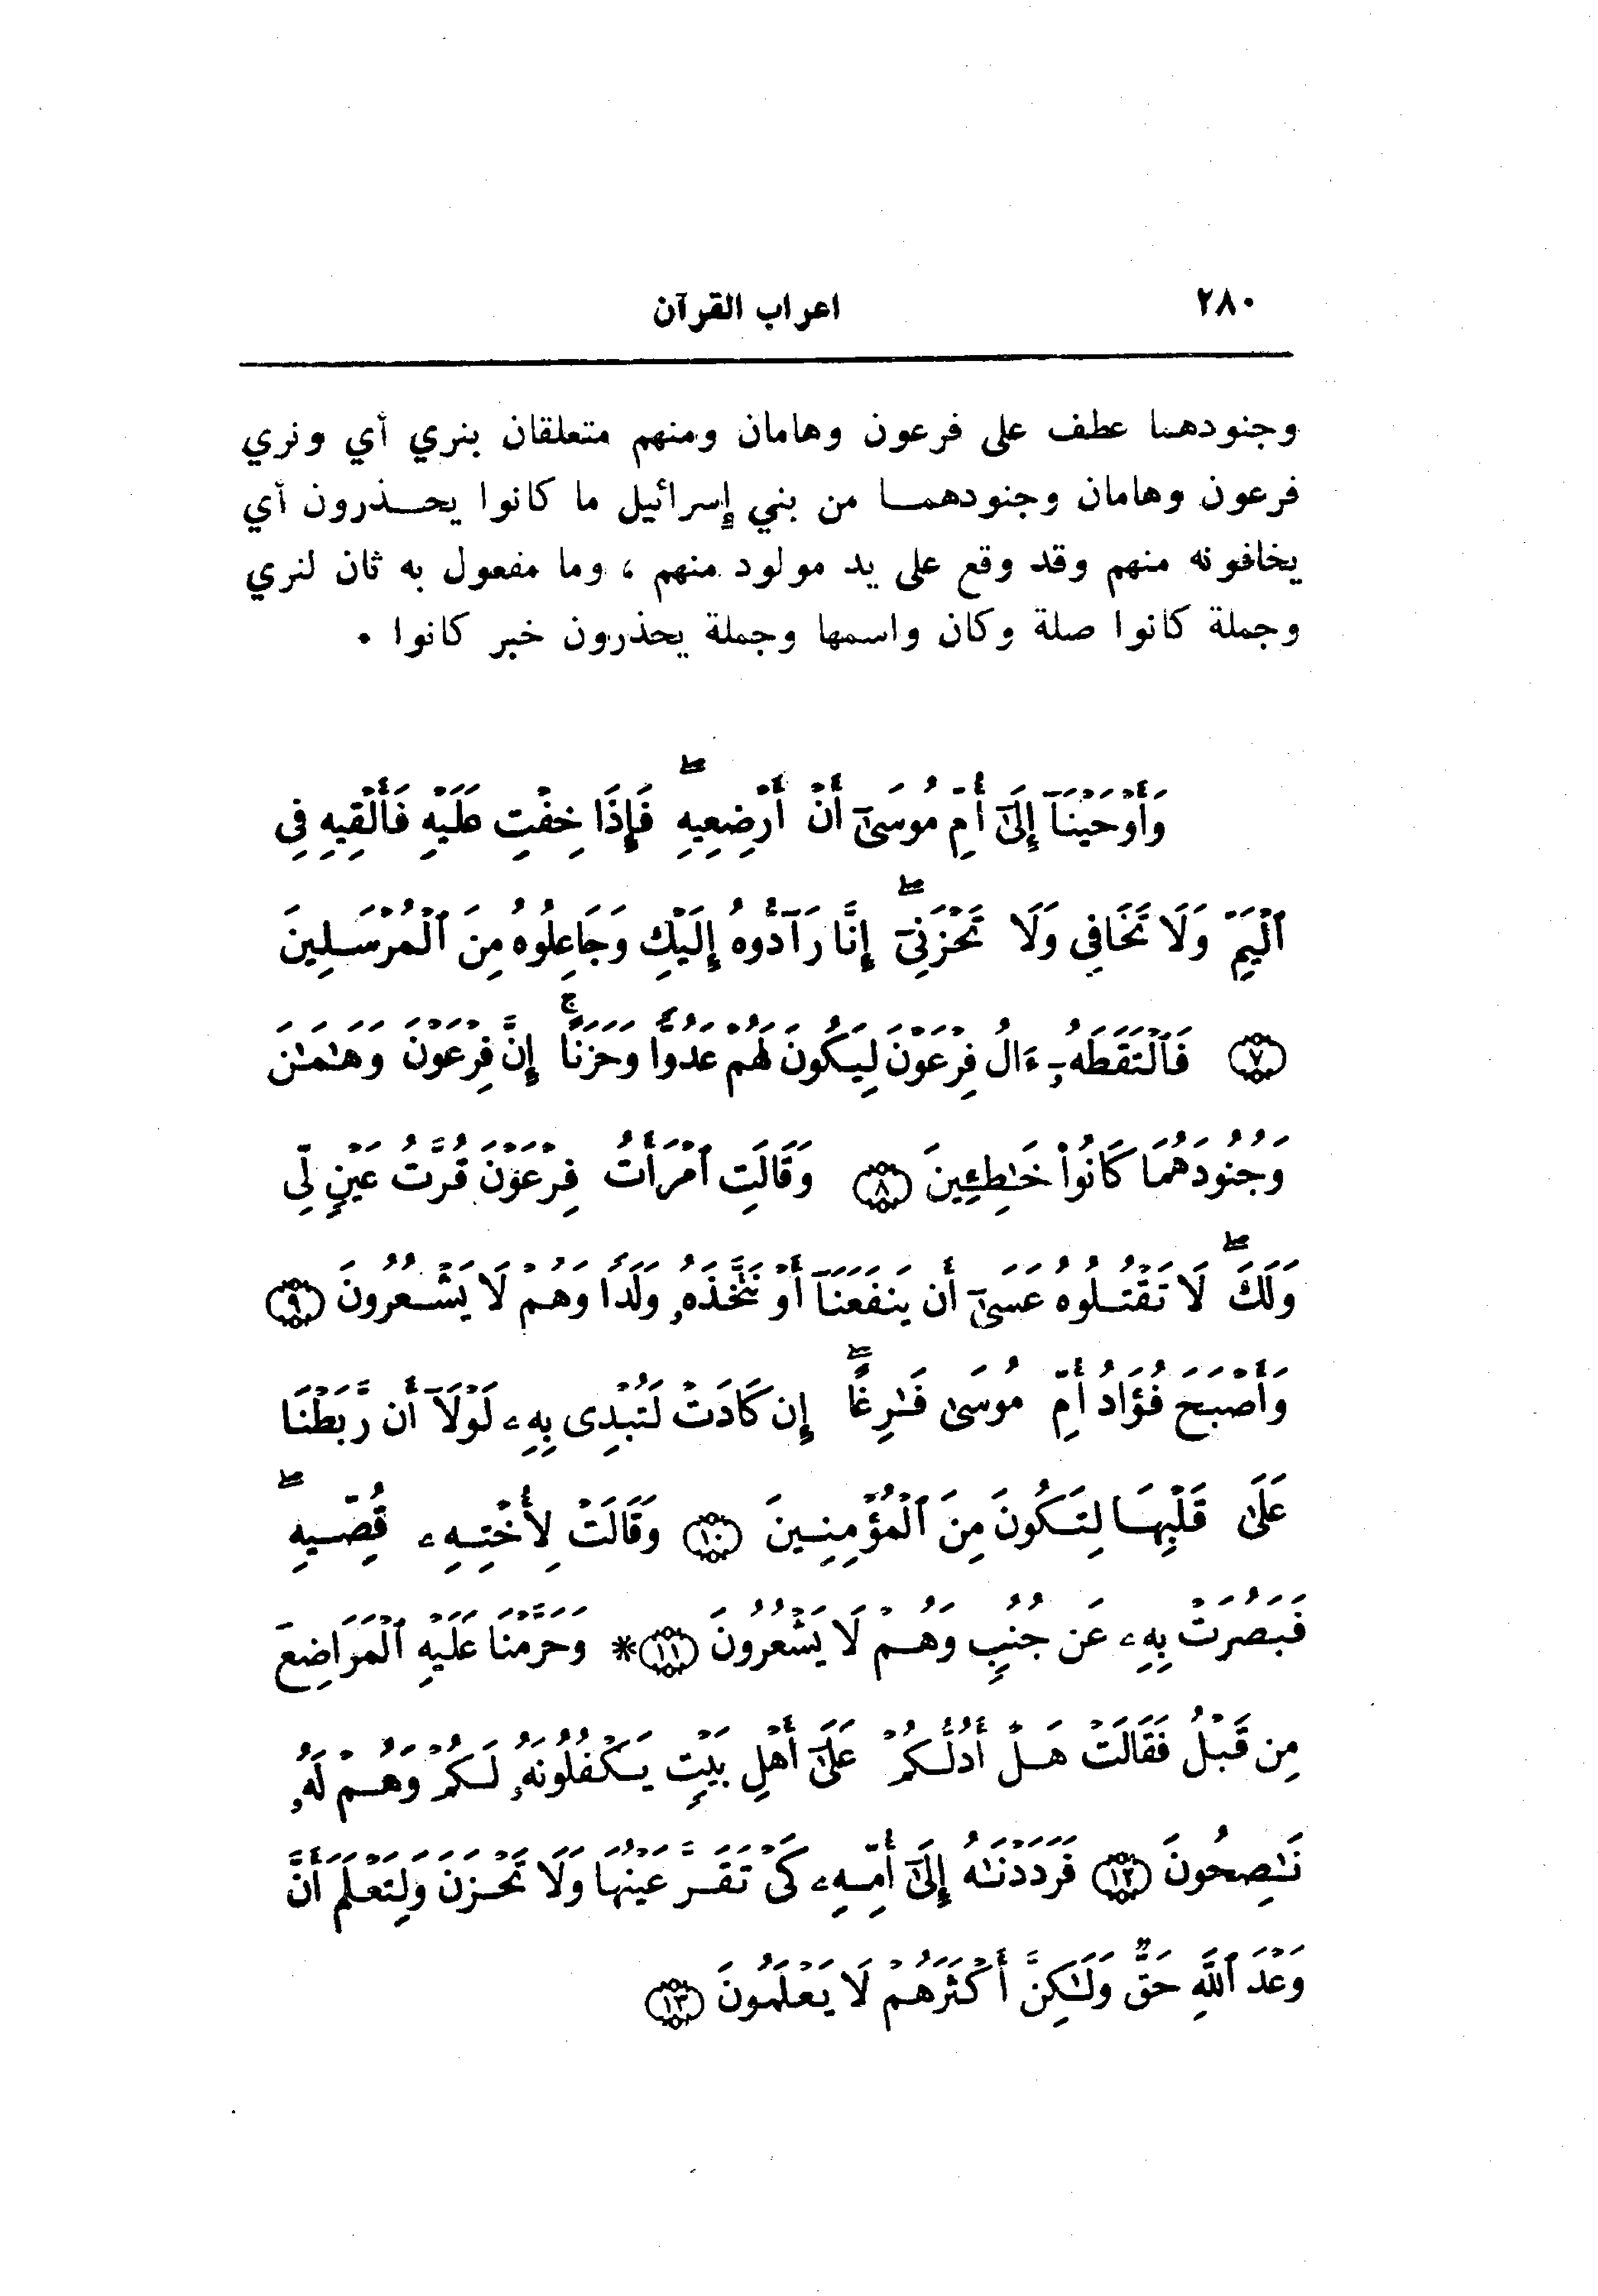 ٢٨٠ اعراب القرآن
وجنودهما عطف على فرعون وهامان ومنهم متعلقان بنري أي ونري
فرعون وهامان وجنودهمـــا من بني إسرائيل ما كانوا يحــذرون أي
يخافونه منهم وقد وقع على يد مولود منهم ، وما مفعول به ثان لنري
وجملة كانوا صلة وكان واسمها وجملة يحذرون خبر كانوا ٠
وَأَوْحَيْنَآ إِلَىٰٓ أُمِّ مُوسَىٰٓ أَنْ أَرْضِعِيهِ ۖ فَإِذَا خِفْتِ عَلَيْهِ فَأَلْقِيهِ فِى
ٱلْيَمِّ وَلَا تَخَافِى وَلَا تَحْزَنِىٓ ۖ إِنَّا رَآدُّوهُ إِلَيْكِ وَجَاعِلُوهُ مِنَ ٱلْمُرْسَلِينَ
﴿٧﴾ فَٱلْتَقَطَهُۥٓ ءَالُ فِرْعَوْنَ لِيَكُونَ لَهُمْ عَدُوًّا وَحَزَنًا ۗ إِنَّ فِرْعَوْنَ وَهَٰمَٰنَ
وَجُنُودَهُمَا كَانُوا۟ خَٰطِـِٔينَ ﴿٨﴾ وَقَالَتِ ٱمْرَأَتُ فِرْعَوْنَ قُرَّتُ عَيْنٍ لِّى
وَلَكَ ۖ لَا تَقْتُلُوهُ عَسَىٰٓ أَن يَنفَعَنَآ أَوْ نَتَّخِذَهُۥ وَلَدًا وَهُمْ لَا يَشْعُرُونَ ﴿٩﴾
وَأَصْبَحَ فُؤَادُ أُمِّ مُوسَىٰ فَٰرِغًا ۖ إِن كَادَتْ لَتُبْدِى بِهِۦ لَوْلَآ أَن رَّبَطْنَا
عَلَىٰ قَلْبِهَا لِتَكُونَ مِنَ ٱلْمُؤْمِنِينَ ﴿١٠﴾ وَقَالَتْ لِأُخْتِهِۦ قُصِّيهِ ۖ
فَبَصُرَتْ بِهِۦ عَن جُنُبٍ وَهُمْ لَا يَشْعُرُونَ ﴿١١﴾ * وَحَرَّمْنَا عَلَيْهِ ٱلْمَرَاضِعَ
مِن قَبْلُ فَقَالَتْ هَلْ أَدُلُّكُمْ عَلَىٰٓ أَهْلِ بَيْتٍ يَكْفُلُونَهُۥ لَكُمْ وَهُمْ لَهُۥ
نَٰصِحُونَ ﴿١٢﴾ فَرَدَدْنَٰهُ إِلَىٰٓ أُمِّهِۦ كَىْ تَقَرَّ عَيْنُهَا وَلَا تَحْزَنَ وَلِتَعْلَمَ أَنَّ
وَعْدَ ٱللَّهِ حَقٌّ وَلَٰكِنَّ أَكْثَرَهُمْ لَا يَعْلَمُونَ ﴿١٣﴾